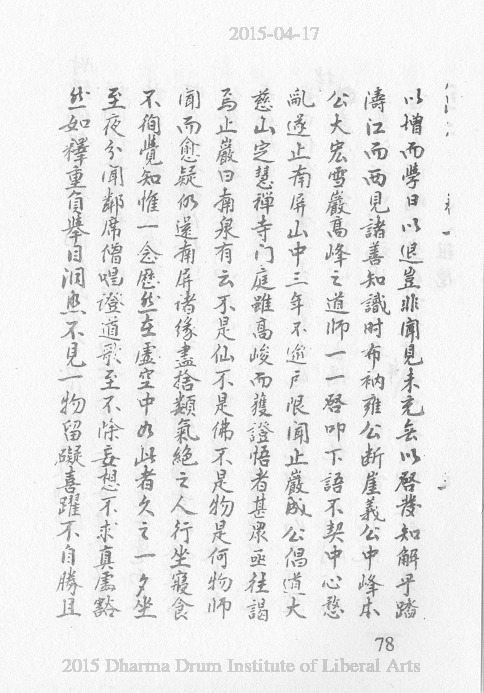 2015-04-17
以增而學日以退豈非聞見未充無以啓發知解乎踏
濤江而西見諸善知識时布衲雍公断崖義公中峰本
公大宏雪巖高峰之道师一一啓叩下語不契中心愁
亂遂止南屏山中三年不逾户限聞止巖成公倡道大
慈山定慧禅寺门庭雖高峻而獲證悟者甚眾亟往謁
焉止巖曰南泉有云不是仙不是佛不是物是何物师
聞而愈疑仍還南屏诸缘盡捨類氣绝之人行坐寢食
不徇覺知惟一念歷然在虛空中如此者久之一夕坐
至夜分闻鄰席僧唱證道歌至不除妄想不求真處豁
然如釋重負舉目洞然不見一物留礙喜躍不自勝且
78
2015 Dharma Drum Institute of Liberal Arts